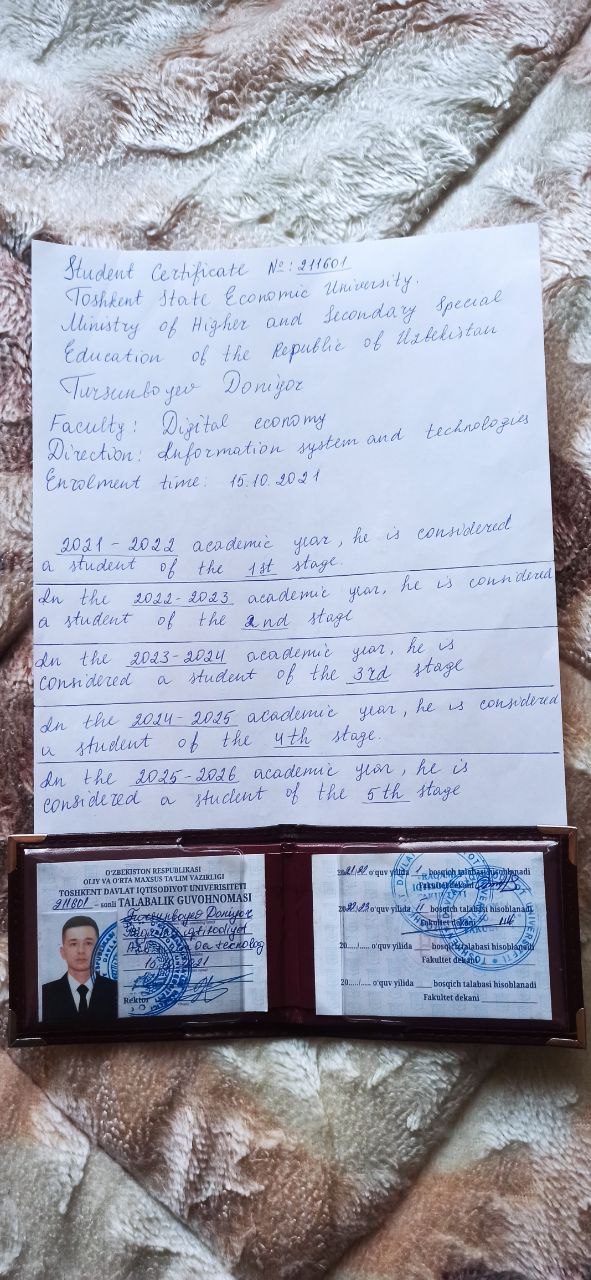 Student Certificate №: 211601
Toshkent State Economic University.
Ministry of Higher and Secondary Special
Education of the Republic of Uzbekistan
Tursunboyev Doniyor
Faculty: Digital economy
Direction: Information system and technologies
Enrolment time: 15.10.2021
2021-2022 academic year, he is considered
a student of the 1st stage.
In the 2022-2023 academic year, he is considered
a student of the 2nd stage
In the 2023-2024 academic year, he is
considered a student of the 3rd stage
In the 2024-2025 academic year, he is considered
a student of the 4th stage.
In the 2025-2026 academic year, he is
considered a student of the 5th stage
O'ZBEKISTON RESPUBLIKASI
OLIY VA O'RTA MAXSUS TA'LIM VAZIRLIGI
TOSHKENT DAVLAT IQTISODIYOT UNIVERSITETI
211601 sonli TALABALIK GUVOHNOMASI
Tursunboyev Doniyor
iqtisodiyot
va texnolog
Rektor
2021/22 o'quv yilida 1 bosqich talabasi hisoblanadi
Fakultet dekani
2022/23 o'quv yilida II bosqich talabasi hisoblanadi
Fakultet dekani
20...../..... o'quv yilida ___ bosqich talabasi hisoblanadi
Fakultet dekani
20...../..... o'quv yilida ___ bosqich talabasi hisoblanadi
Fakultet dekani